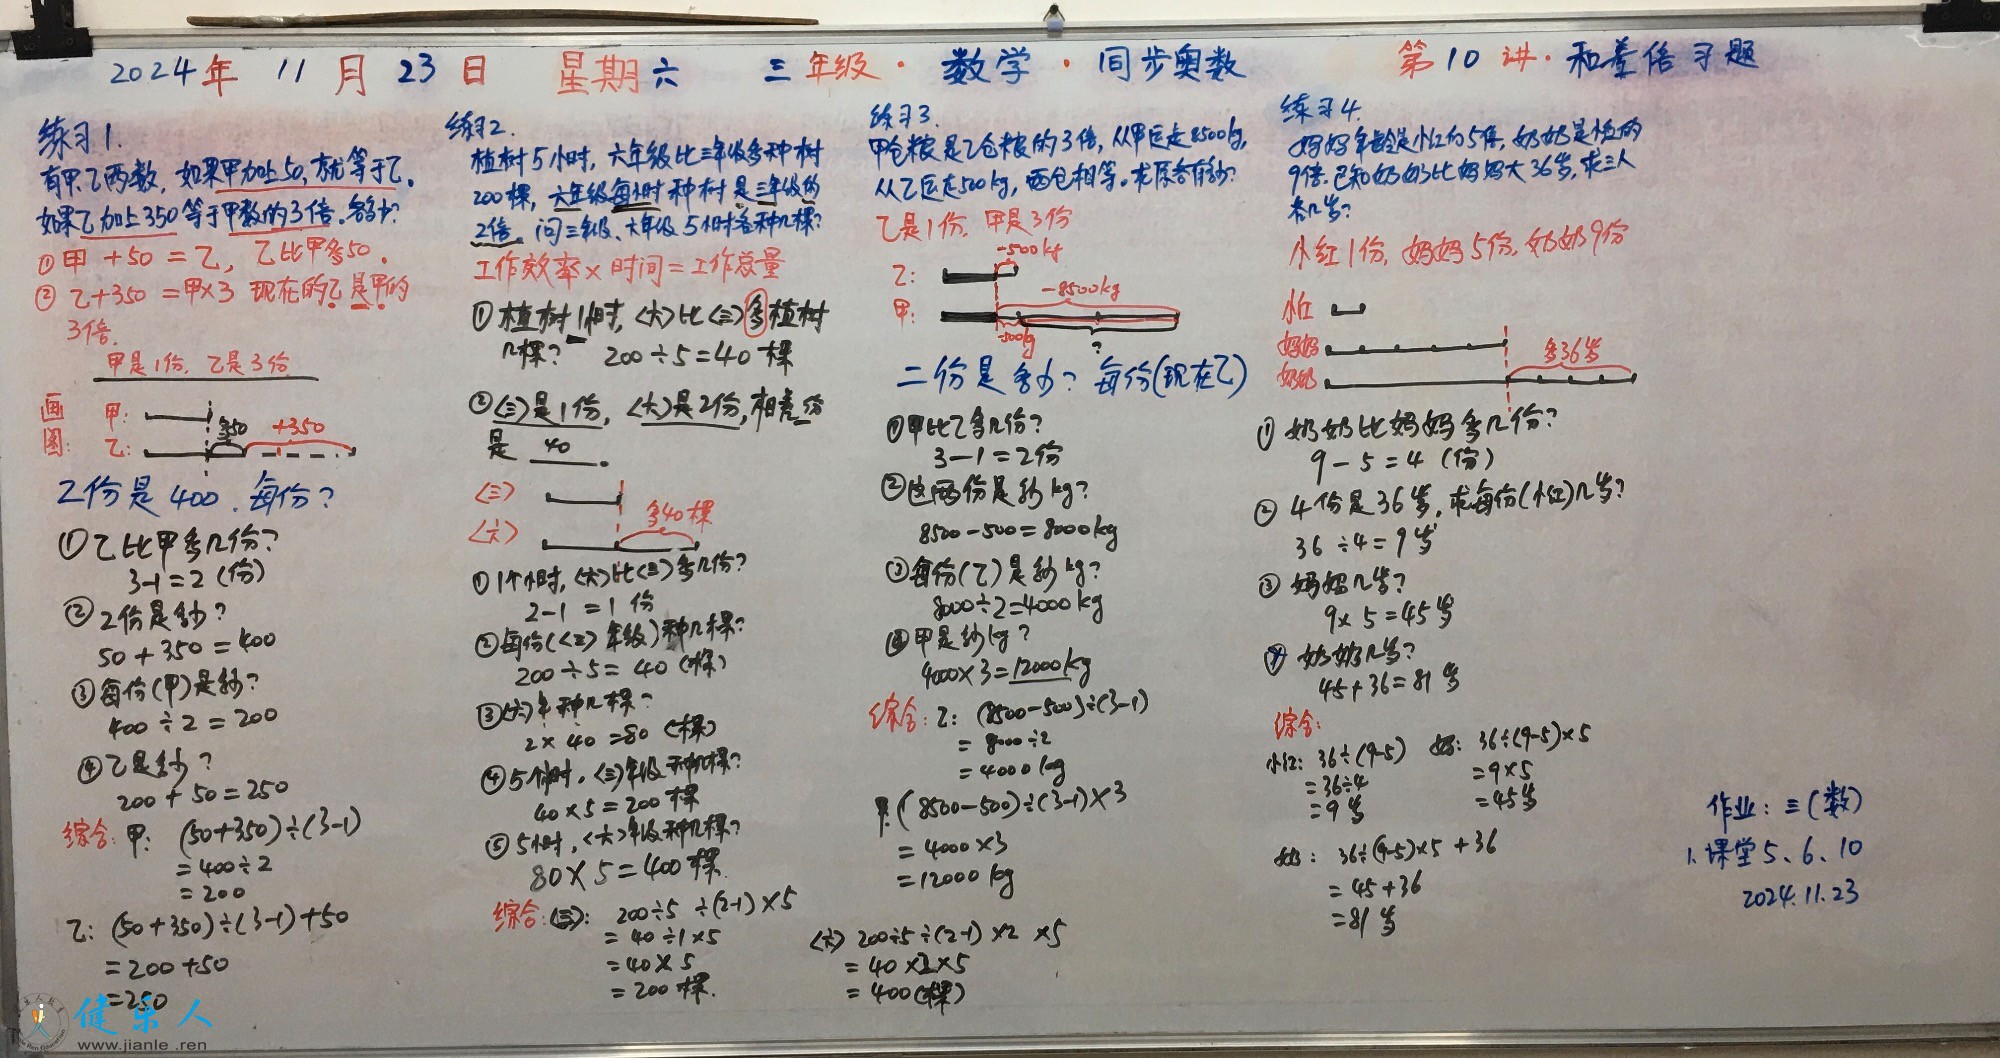 2024年 11月 23日 星期六 三年级·数学·同步奥数 第10讲·和差倍习题
练习1.
有甲.乙两数,如果甲加上50,就等于乙。
如果乙加上350等于甲数的3倍。各多少?
①甲+50=乙, 乙比甲多50.
②乙+350=甲×3 现在的乙是甲的
3倍.
甲是1份, 乙是3份
画图:
甲:
多50 +350
乙:
2份是400. 每份?
①乙比甲多几份?
3-1=2(份)
②2份是多少?
50+350=400
③每份(甲)是多少?
400÷2=200
④乙是多少?
200+50=250
综合:甲: (50+350)÷(3-1)
=400÷2
=200
乙: (50+350)÷(3-1)+50
=200+50
=250
练习2.
植树5小时,六年级比三年级多种树
200棵,六年级每小时种树是三年级的
2倍。问三年级、六年级5小时各种几棵?
工作效率×时间=工作总量
①植树1小时,<六>比<三>多植树
几棵? 200÷5=40棵
②<三>是1份,<六>是2份,相差一份
是 40 .
<三>
多40棵
<六>
①1个小时,<六>比<三>多几份?
2-1=1份
②每份(<三>年级)种几棵?
200÷5=40(棵)
③<六>年种几棵?
2×40=80(棵)
④5个小时,<三>年级种几棵?
40×5=200棵
⑤5小时,<六>年级种几棵?
80×5=400棵.
综合:<三>: 200÷5÷(2-1)×5
=40÷1×5
=40×5
=200棵.
<六> 200÷5÷(2-1)×2×5
=40×2×5
=400(棵)
练习3.
甲仓粮是乙仓粮的3倍,从甲运走8500kg,
从乙运走500kg,两仓相等。求原各有多少?
乙是1份, 甲是3份
-500kg
乙:
-8500kg
甲:
-500kg ?
二份是多少? 每份(现在乙)
①甲比乙多几份?
3-1=2份
②这两份是多少kg?
8500-500=8000kg
③每份(乙)是多少kg?
8000÷2=4000kg
④甲是多少kg?
4000×3=12000kg
综合: 乙: (8500-500)÷(3-1)
=8000÷2
=4000kg
甲:(8500-500)÷(3-1)×3
=4000×3
=12000kg
练习4.
妈妈年龄是小红的5倍,奶奶是她的
9倍.已知奶奶比妈妈大36岁,求三人
各几岁?
小红1份,妈妈5份,奶奶9份
小红
妈妈 多36岁
奶奶
①奶奶比妈妈多几份?
9-5=4(份)
②4份是36岁,求每份(小红)几岁?
36÷4=9岁
③妈妈几岁?
9×5=45岁
④奶奶几岁?
45+36=81岁
综合:
小红: 36÷(9-5) 妈: 36÷(9-5)×5
=36÷4 =9×5
=9岁 =45岁
奶: 36÷(9-5)×5+36
=45+36
=81岁
作业:三(数)
1.课堂5、6、10
2024.11.23
健乐人
www.jianle.ren